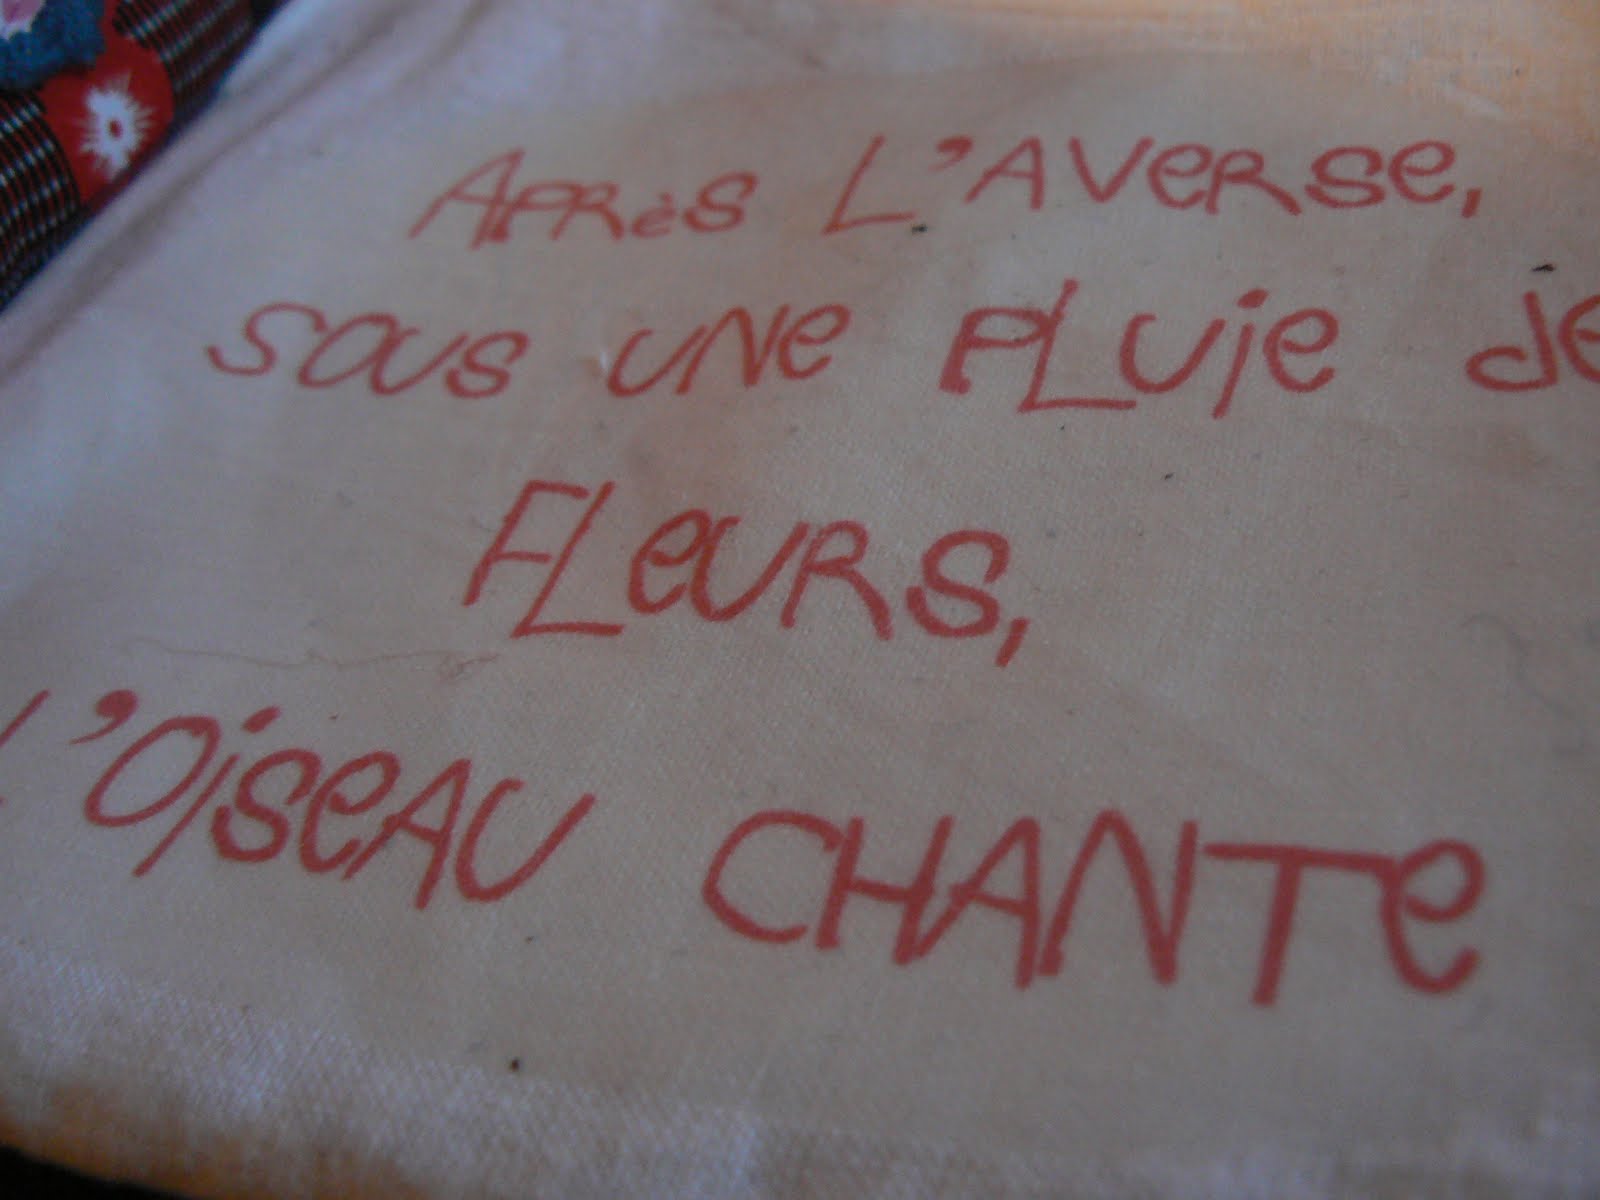 Après l'averse,
sous une pluie de
fleurs,
l'oiseau chante